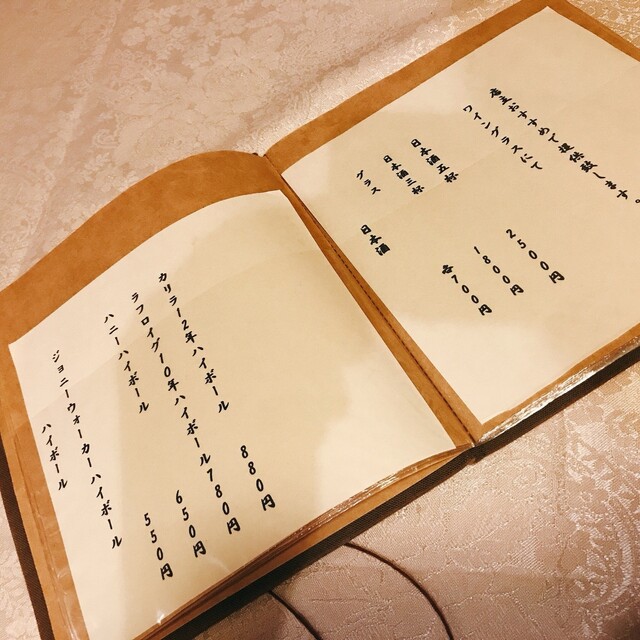 店主おすすめで提供致します。
ワイングラスにて
日本酒五杯 2500円
日本酒三杯 1800円
グラス 各700円
日本酒
カリラ12年ハイボール 880円
ラフロイグ10年ハイボール 780円
ハニーハイボール 650円
ジョニーウォーカーハイボール 550円
ハイボール